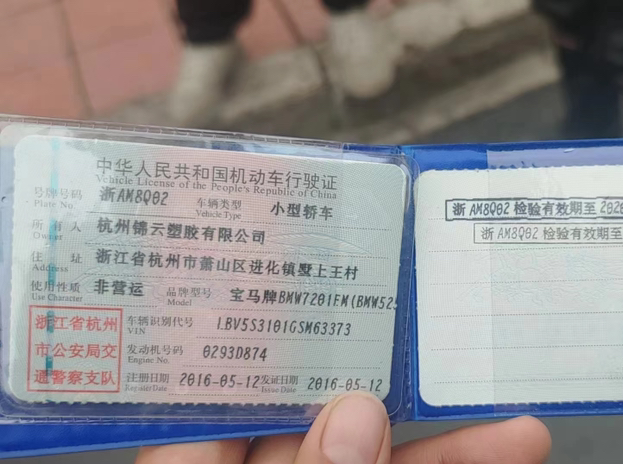 中华人民共和国机动车行驶证
Vehicle License of the People's Republic of China
号牌号码 浙AM8Q02 车辆类型 小型轿车
Plate No. Vehicle Type
所有人 杭州锦云塑胶有限公司
Owner
住址 浙江省杭州市萧山区进化镇墅上王村
Address
使用性质 非营运 品牌型号 宝马牌BMW7201FM(BMW525
Use Character Model
浙江省杭州 车辆识别代号 LBV5S3101GSM63373
VIN
市公安局交 发动机号码 0293D874
Engine No.
通警察支队 注册日期 2016-05-12 发证日期 2016-05-12
Register Date Issue Date
浙AM8Q02 检验有效期至 202
浙AM8Q02 检验有效期至